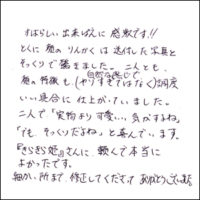 すばらしい出来ばえに感激です!!
とくに 顔の りんかくは 送付した写真と
そっくりで 驚きました。二人とも、
自然な感じで
顔の特徴も(やりすぎではなく)調度
いい具合に 仕上がっていました。
二人で「実物より可愛い、負かすよね」
「でも、そっくりだよね」と喜んでいます。
『きらきら姫』さんに 頼んで本当に
よかったです。
細かい所まで 修正してくださって ありがとうございました